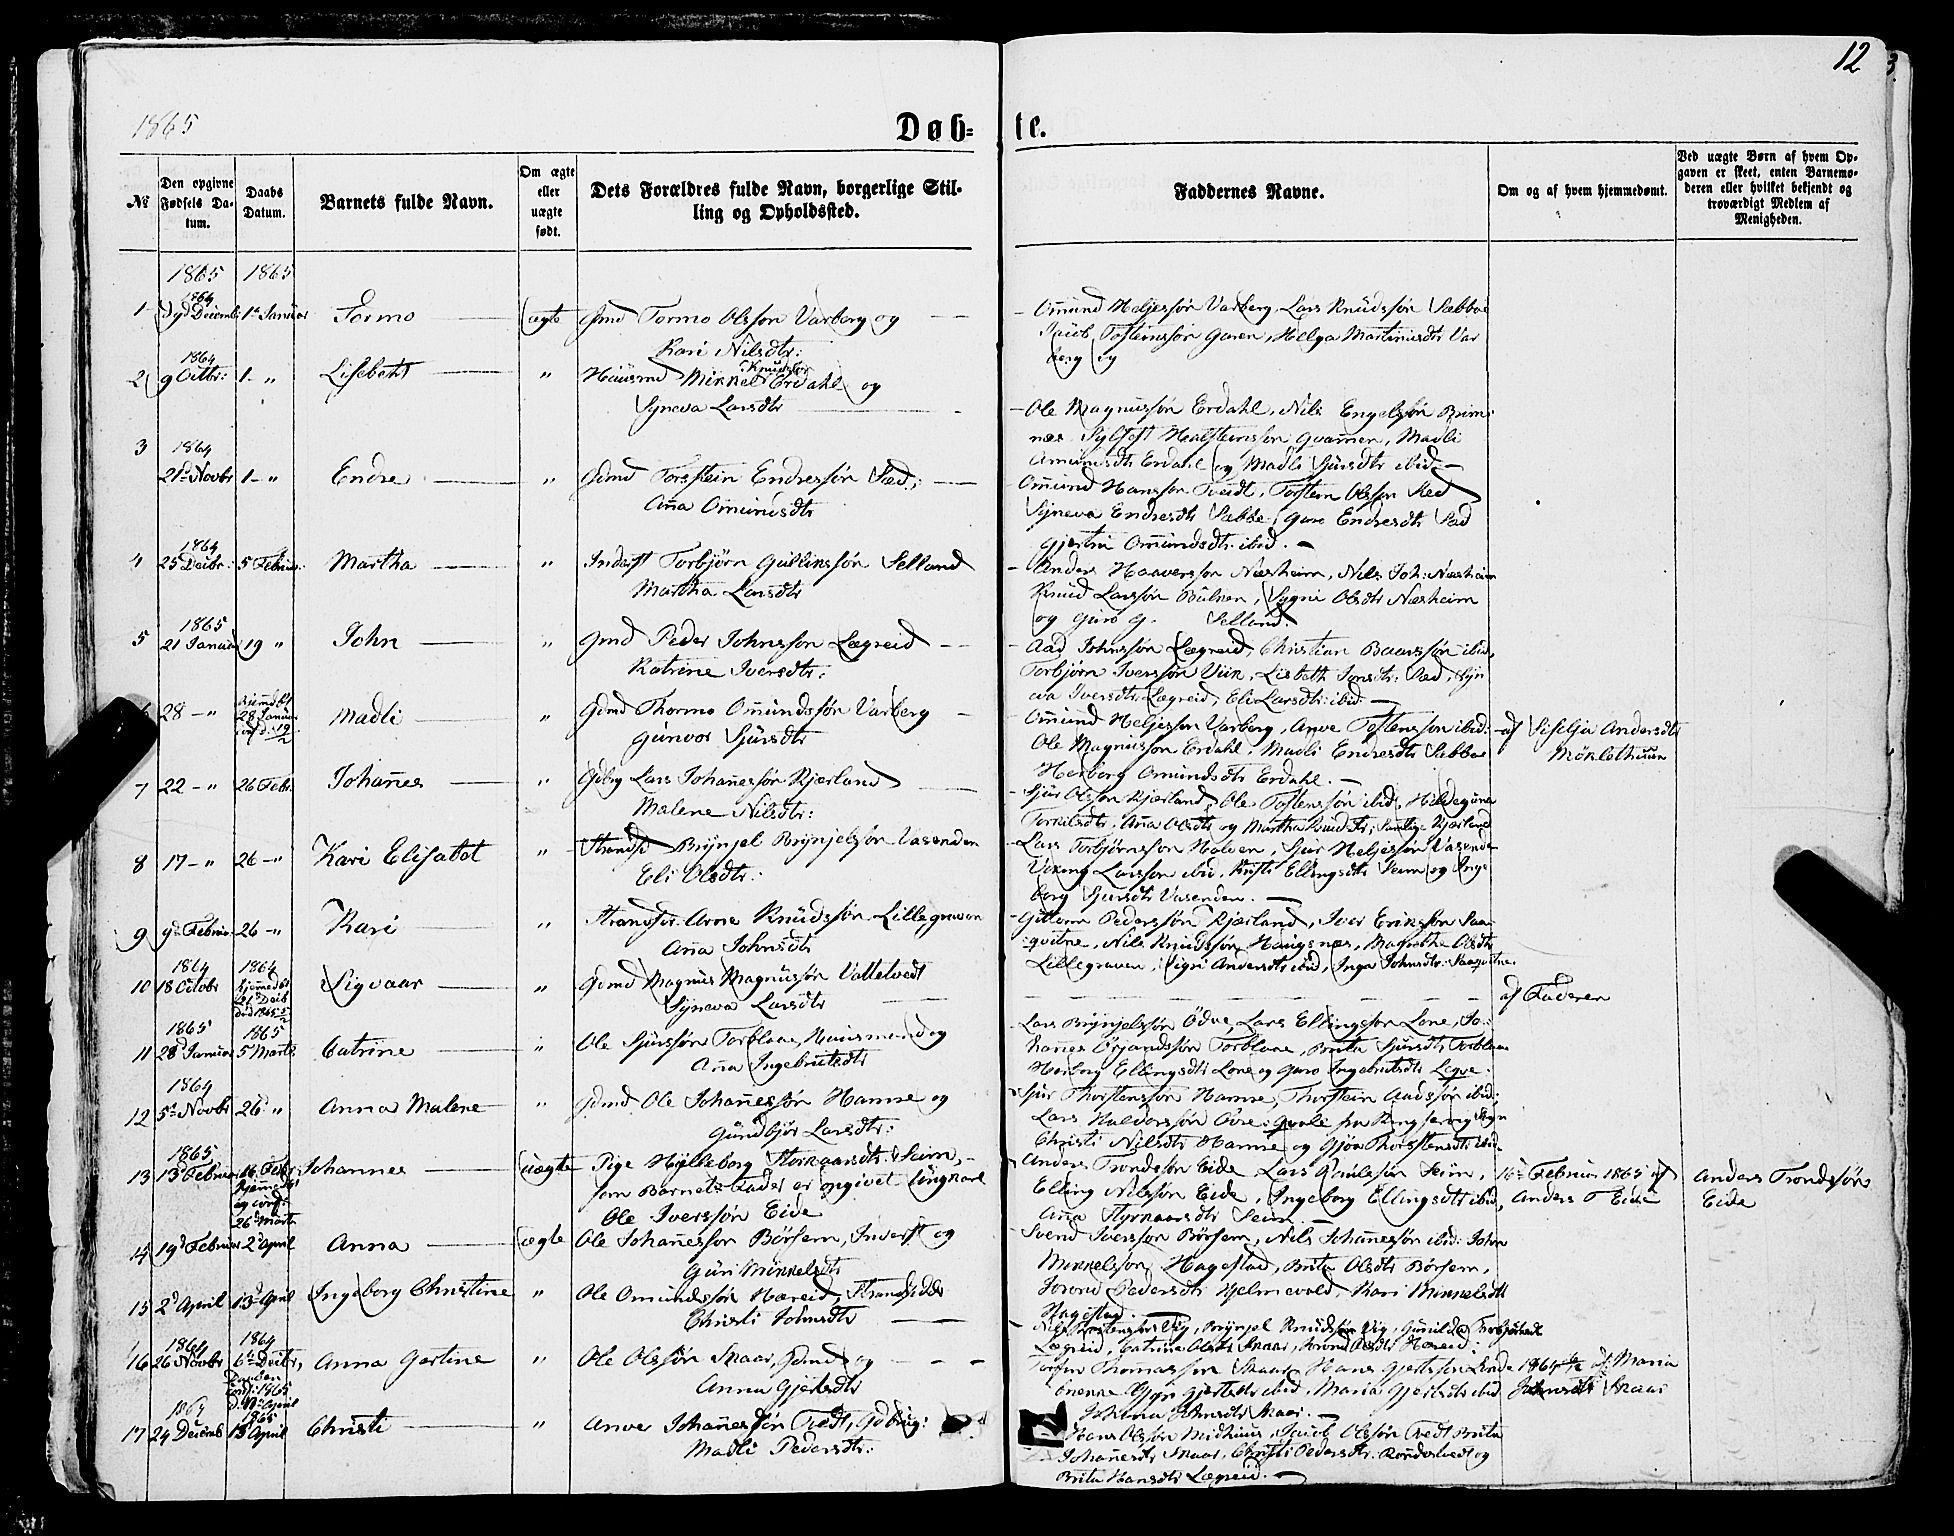 12
1865
Døb= te.
№
Den opgivne Fødsels Datum.
Daabs Datum.
Barnets fulde Navn.
Om ægte eller uægte født.
Dets Forældres fulde Navn, borgerlige Stilling og Opholdssted.
Faddernes Navne.
Om og af hvem hjemmedømt.
Ved uægte Børn af hvem Opgaven er skeet, enten Barnemoderen eller hvilket bekjendt og troværdigt Medlem af Menigheden.
1865 1865
1864
1 Decemb: 1 Januar Tormo ægte Gmd Tormo Olsson Varberg og
Kari Nilsdtr:
Omund Heljessøn Varberg, Lars Knudssøn Sæbbø
Jacob Tosteinssøn Garen, Helga Martinusdtr Var
berg og
1864
2 9 Octbr: 1 - " Lisebeth " Huusmd Mikkel Knudssøn Erdahl og
Syneva Larsdtr
Ole Magnussøn Erdahl, Nils Engelssøn Brim:
næs, Sylfest Halsteinssøn Qvammen, Madli
Amundsdtr Erdahl og Madli Sjursdtr ibid. -
3 1864
21 Novbr 1 - " Endre " Gdmd Torstein Endressøn Sæd,
Anna Omundsdtr
Omund Hansson Tveidt, Tostein Olsson Sæd
Syneva Endresdtr Sæbbe, Guro Endresdtr Sæd
Gjertru Omundsdtr ibid. -
1864
4 25 Decbr: 5 Februar: Martha " Inderst Torbjörn Gullikssøn Selland
Martha Larsdtr
Anders Haaverssøn Næsheim, Nils Joh: Næsheim
Knud Larssøn Bulken, Sygni Olsdtr Næsheim
og Guro G. Selland.
1865
5 21 Januar 19 " John " Gmd Peder Johnsson Lægreid
Katrine Iversdtr:
Aad Johnssøn Lægreid, Christian Baarssøn ibid,
Torbjörn Iverssøn Viik, Lisbeth Jonsdtr: Sæd, Syn
eva Iversdtr Lægreid, Eli Larsdtr: ibid. -
28 - " Hjemmedbt 28 Januar 19/2 Madli " Gdmd Thormo Omundssøn Varberg
Gunvor Sjursdtr
Omund Heljesson Varberg, Anve Tostensson ibid:
Ole Magnusson Erdahl, Madli Endresdtr Sæbbø
Herborg Omundsdtr Erdahl. -
af Siselja Andersdtr
Möklethuun
7 22 - " 26 Febr. Johannes " Gdbrg Lars Johannessøn Kjærland
Malene Nilsdtr:
Sjur Olsson Kjærland, Ole Tostenssøn ibid, Hildegunn
Torkilsdtr, Anna Olsdtr og Martha Knudsdtr, Samtlige Kjærland
8 17 - " 26 - " Kari Elisabet " Strandsd Brynjel Brynjelssøn Vasenden
Eli Olsdtr:
Lars Torbjørnsson Halven, Sjur Heljessøn Vasende
Viking Larsson ibid, Kristi Ellingsdtr Seim og Inge
borg Sjursdtr Vasenden. -
9 9 Februar 26 - " Kari " Strandsid: Arne Knudssøn Lillegraven
Anna Johnsdtr
Guttorm Pederssøn Kjærland, Iver Erikssøn Saa
qvitne, Nils Knudssøn Haugsnæs, Bagrethe Olsdtr
Lillegraven, Sigri Andersdtr ibid, Inga Johnsdtr: Saaqvitne.
1864 1864
10 18 Octobr Hjemmedbt 21 Decb Sigvaar " Gdmd Magnus Magnussøn Valletvedt
Synevа Larsdtr
af Faderen
1865 1865
11 28 Januar 5 Marts Catrine " Ole Sjurssøn Torblaae, Huusmand og
Ana Ingebritsdtr
Lars Brynjelssøn Ödve, Lars Ellingssøn Lone, Jo:
hannes Örjanssøn Torblaae, Brita Sjursdtr Torblaae
Herborg Ellingsdtr Lone og Guro Ingebritsdtr Leqve.
1864
12 5 Novbr 26 " Anna Malene " Gdmd Ole Johannessøn Hamre og
Gundbjör Larsdtr:
Sjur Thorstenssøn Hamre, Thorstein Aadssøn ibid,
Lars Haldorssøn Övre-Qvale fra Kingservig Sogn
Christi Nilsdtr Hamre og Gjöa Thorstensdtr ibid
1865
13 13 Februar 16 Febr Hjemmedbt og conf: 26 Marts Johannes uægte Pige Hylleborg Storkaarsdtr Seim,
som Barnets Fader er opgivet Ungkarl
Ole Iverssøn Eide
Anders Trondssøn Eide, Lars Gunlesson Seim,
Elling Nilssøn Eide, Ingeborg Ellingsdtr ibid,
Anna Styrkaarsdtr Seim. -
16 Februar 1865 af
Anders T Eide
Anders Trondssøn
Eide
14 19 Februar 2 April Anna ægte Ole Johannessøn Börsem, Inderst og
Guri Mikkelsdtr
Svend Iverssøn Börsem, Nils Johannessøn ibid: John
Mikkelsson Hagestad, Brita Olsdtr Börsem,
Torond Pedersdtr Hjelmevold, Kari Mikkelsdtr
Hagestad.
15 2 April 13 April Ingeborg Christine " Ole Omundssøn Hæreid, Strandsidder
Christi Johnsdtr
Vig, Brynjel Knudssøn Vig, Gunild
Lægreid, Catrine Olsdtr Skaar, Torond Olsdtr Hæreid.
1864 1864
16 26 Novbr 6 Decbr, Daaben conf: 1865 d. 13 April Anna Gjertine " Ole Olssøn Skaar, Gdmd og
Anna Gjertsdtr
Torfin Thomassøn Skaar, Hans Gjertssøn Lunde
Gjöa Gjertsdtr ibid, Maria Gjertsdtr ibid
Johnsdtr Skaar. -
1864 6/12 af Maria
Johnsdtr Skaar
1864 1865
17 24 Decemb 13 April Christi " Anve Johannessøn Tvedt, Gdbrug:
Madli Pedersdtr:
Hans Olssøn Midthuus, Jacob Olssøn Tvedt, Brita
Johannesdtr Skaar, Christi Pedersdtr: Rondestvedt og
Brita Hansdtr Lægreid. -